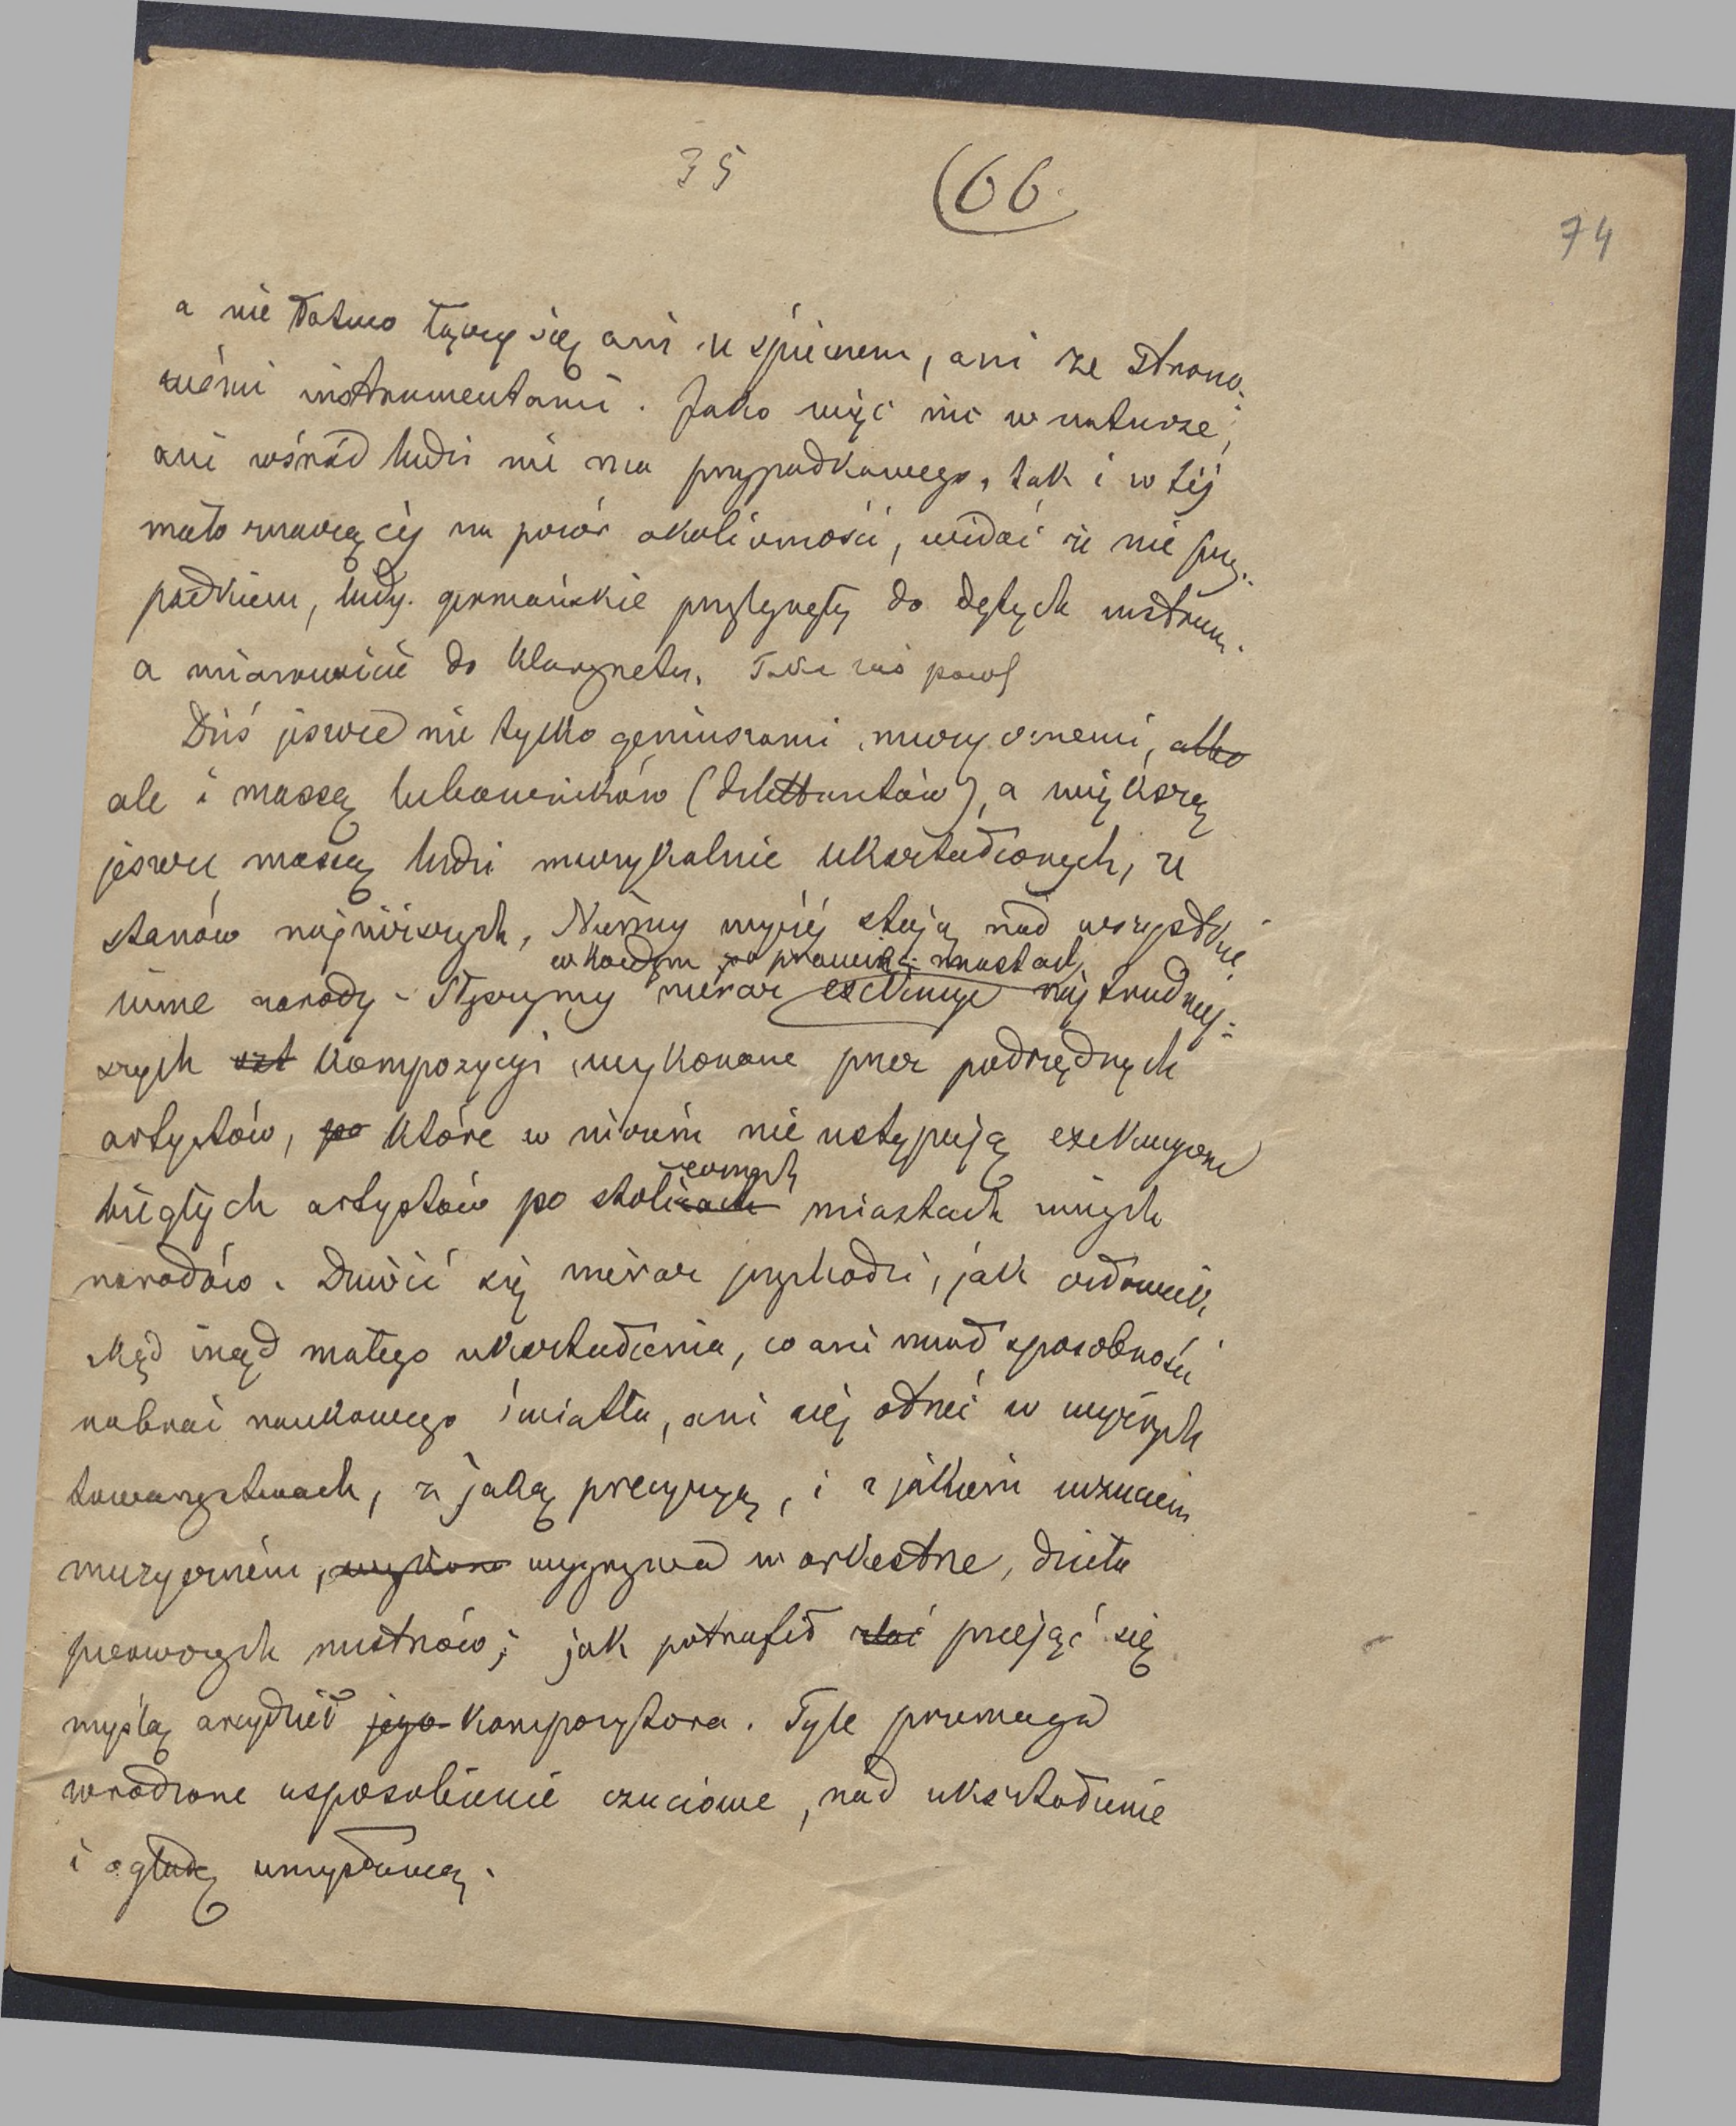 35 (66.
74
a nie łatwo łączy się ani ze śpiewem, ani ze strono-
wémi instrumentami. Jako więc nic w naturze,
ani wśród ludzi nie ma przypadkowego, tak i w téj
mało znaczącéj na pozór okoliczności, widać że nie przy-
padkiem, ludy germańskie przylgnęły do dętych instrum.
a mianowicie do klarynetu.
Dziś jeszcze nie tylko geniuszami muzycznemi, albo
ale i massą lubowników (dilettantów), a większą
jeszcze massą ludzi muzykalnie ukształconych, ze
stanów najniższych, Niemcy wyżéj stoją nad wszystkie
inne narody. Słyszymy nieraz exekucye najtrudniej-
w każdym prawie miastach
szych szt kompozycji wykonane przez podrzędnych
artystów, po które w niczém nie ustępują exekucyom
biegłych artystów po stolicach miastach innych
ecznych
narodów. Dziwić się nieraz przychodzi, jak człowiek
skąd inąd małego ukształcenia, co ani miał sposobności
nabrać naukowego światła, ani się otrzeć w wyższych
towarzystwach, z jaką precyzyą, i z jakiém uczuciem
muzyczném, wykona wygrywa w orkiestrze, dzieła
pierwszych mistrzów; jak potrafił zlać przejąć się
myślą arcydzieł jego kompozytora. Tyle przemaga
wrodzone usposobienie czuciowe, nad ukształcenie
i ogładę umysłową.